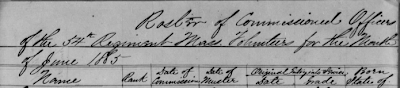 Roster of Commissioned Officers
of the 54th Regiment Mass. Volunteers for the Month
of June 1865
Name Rank Date of Commission Date of Muster Original Entry into Service Date Grade Born State of